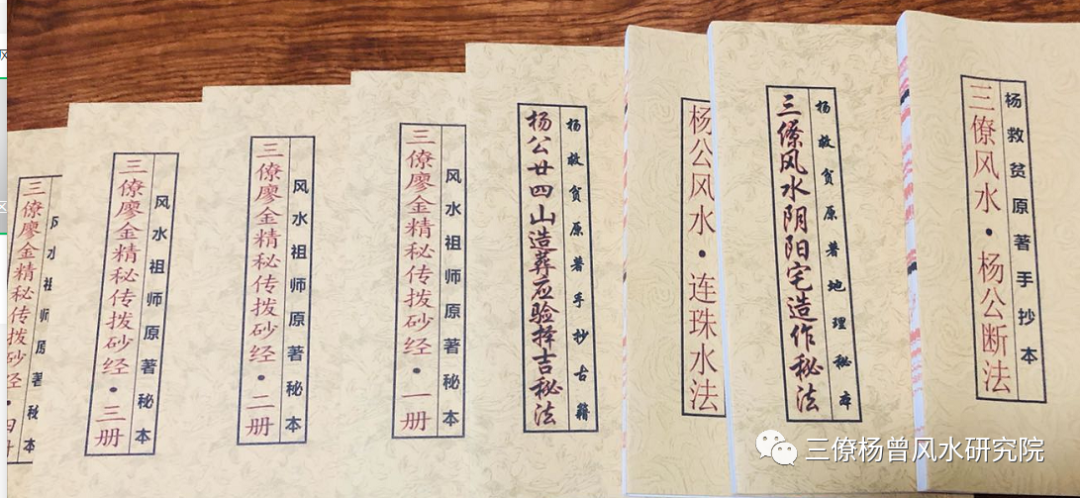 三僚廖金精秘传拨砂经·四册
风水祖师原著秘本
三僚廖金精秘传拨砂经·三册
风水祖师原著秘本
三僚廖金精秘传拨砂经·二册
风水祖师原著秘本
三僚廖金精秘传拨砂经·一册
风水祖师原著秘本
杨公廿四山造葬应验择吉秘法
杨救贫原著手抄古籍
杨公风水·连珠水法
三僚风水阴阳宅造作秘法
杨救贫原著地理秘本
三僚风水·杨公断法
杨救贫原著手抄本
三僚杨曾风水研究院